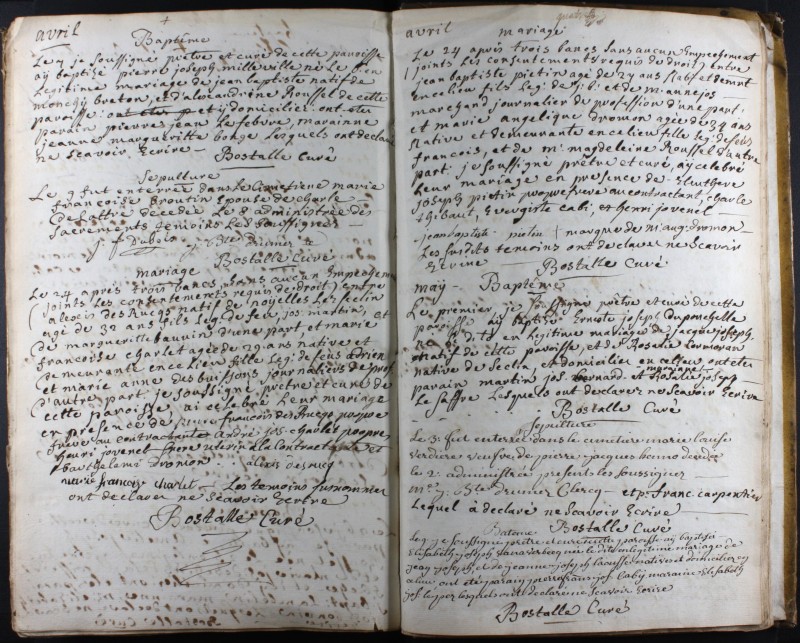 avril
Baptême
Le 7 je soussigné prêtre et curé de cette paroisse
aÿ baptisé pierre joseph milleville né Le 6 en
Legitime mariage de jean baptiste natif de
monchÿ breton, et d'alexandrine Roussel de cette
paroisse: ont eté
parain pierre jean le febvre, marainne
jeanne margueritte Lesquels ont declaré
ne scavoir Ecrire — Bostalle Curé
Sepulture
Le 9 fut enterrée dans le cimetiere marie
francoise Broutin Epouse de charle
Delattre decedée Le 8 administrée des
sacrements temoins Les soussignés
j. f Dubois
Bostalle Curé
mariage
Le 24 apres trois bancs sans aucun Empechem
joints les consentements requis de droit) entre
alexis des Rucqs natif de noÿelles Lez seclin
agé de 32 ans fils Leg: de feu jos: martin, et
de margueritte bauvin d'une part et marie
francoise charlet agée de 29 ans native et
demeurante en ce lieu fille Leg: de feus adrien
et marie anne des buissons journaliers de prof
d'autre part, je soussigné prêtre et curé de
cette paroisse, ai celebré Leur mariage
en presence de francois des Rucqs
frere au contractant andré jos: charlet
henri jovenel frere uterin a la contractante et
barthelemi Dromon alexis desrucq
marie francoise charlet — Les temoins susnommés
ont declarer ne scavoir Ecrire
Bostalle Curé
avril mariage
Le 24 après trois bancs sans aucun Empechement
(joints les consentements requis de droit) entre
jean baptiste pietin agé de 27 ans natif et demeurt
en ce lieu fils Leg: de j: b: et de m: anne jos:
marchand journalier de profession d'une part:
et marie angelique dromon agée de 34 ans
Native et demeurante en ce lieu fille Leg: de feus
francois, et de m: magdeleine Roussel d'autre
part. je soussigné prêtre et curé, aÿ celebré
Leur mariage en presence de Eleuthere
joseph pietin frere au contractant, charle
thibaut, cabi, et henri jovenel —
jean baptiste pietin marque de m: aug: dromon —
Les susdits temoins ont declarer ne Scavoir
Ecrire Bostalle Curé
maÿ — Baptême
Le premier je soussigné prêtre et curé de cette
paroisse aÿ baptisé joseph Duponchelle
né dit en Legitime mariage de jacque joseph
natif de cette paroisse, et de Rosalie Cormoran
native de Seclin, et domicilier en ce lieu ont eté
parain martin jos: bernard et maraine Rosalie joseph
Le saffre Lesquels ont declarez ne Scavoir Ecrire
Bostalle Curé
Sepulture
Le 3: fut enterrée dans le cimetiere marie
verdiere veufve de pierre jacques decedée
le 2: administrée presents les soussigner —
Clercq — et p: franc: carpentier
Lequel a declaré ne scavoir Ecrire
Bostalle Curé
Batême
Le je soussigné prêtre et curé de cette paroisse aÿ baptisé
Elisabeth joseph née le dit en legitime mariage de
jean joseph et de jeanne joseph natives et domicilier en
ce lieu ont eté parain pierre francois jos: Cabÿ maraine Elisabeth
jos: lesquels ont declarer ne scavoir Ecrire
Bostalle Curé